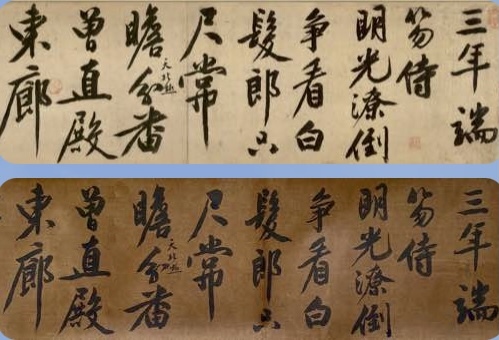 三年端
笏侍
明光潦倒
争看白
髮郎只
尺常
瞻天北極分番
曾直殿
東廊
三年端
笏侍
明光潦倒
争看白
髮郎只
尺常
瞻天北極分番
曾直殿
東廊